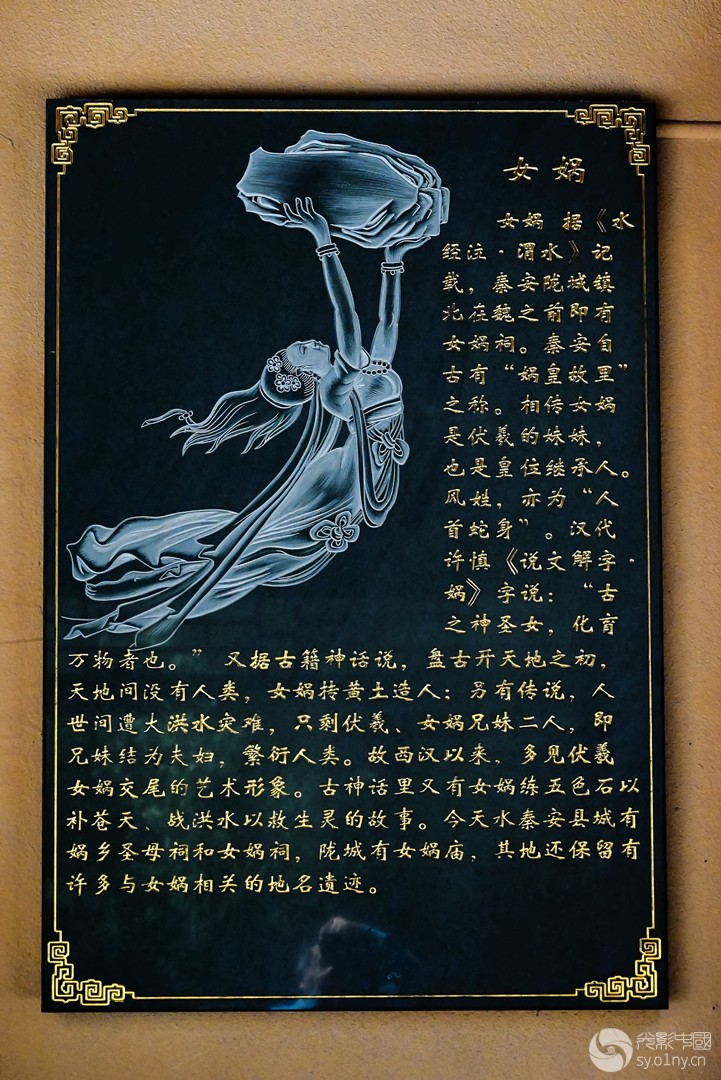 女娲
女娲 据《水
经注·渭水》记
载，秦安陇城镇
北在魏之前即有
女娲祠。秦安自
古有“娲皇故里”
之称。相传女娲
是伏羲的妹妹，
也是皇位继承人。
风姓，亦为“人
首蛇身”。汉代
许慎《说文解字·
娲》字说：“古
之神圣女，化育
万物者也。”又据古籍神话说，盘古开天地之初，
天地间没有人类，女娲抟黄土造人；另有传说，人
世间遭大洪水灾难，只剩伏羲、女娲兄妹二人，即
兄妹结为夫妇，繁衍人类。故西汉以来，多见伏羲
女娲交尾的艺术形象。古神话里又有女娲练五色石以
补苍天、战洪水以救生灵的故事。今天水秦安县城有
娲乡圣母祠和女娲祠，陇城有女娲庙，其地还保留有
许多与女娲相关的地名遗迹。
光影中国
sy.o1ny.cn